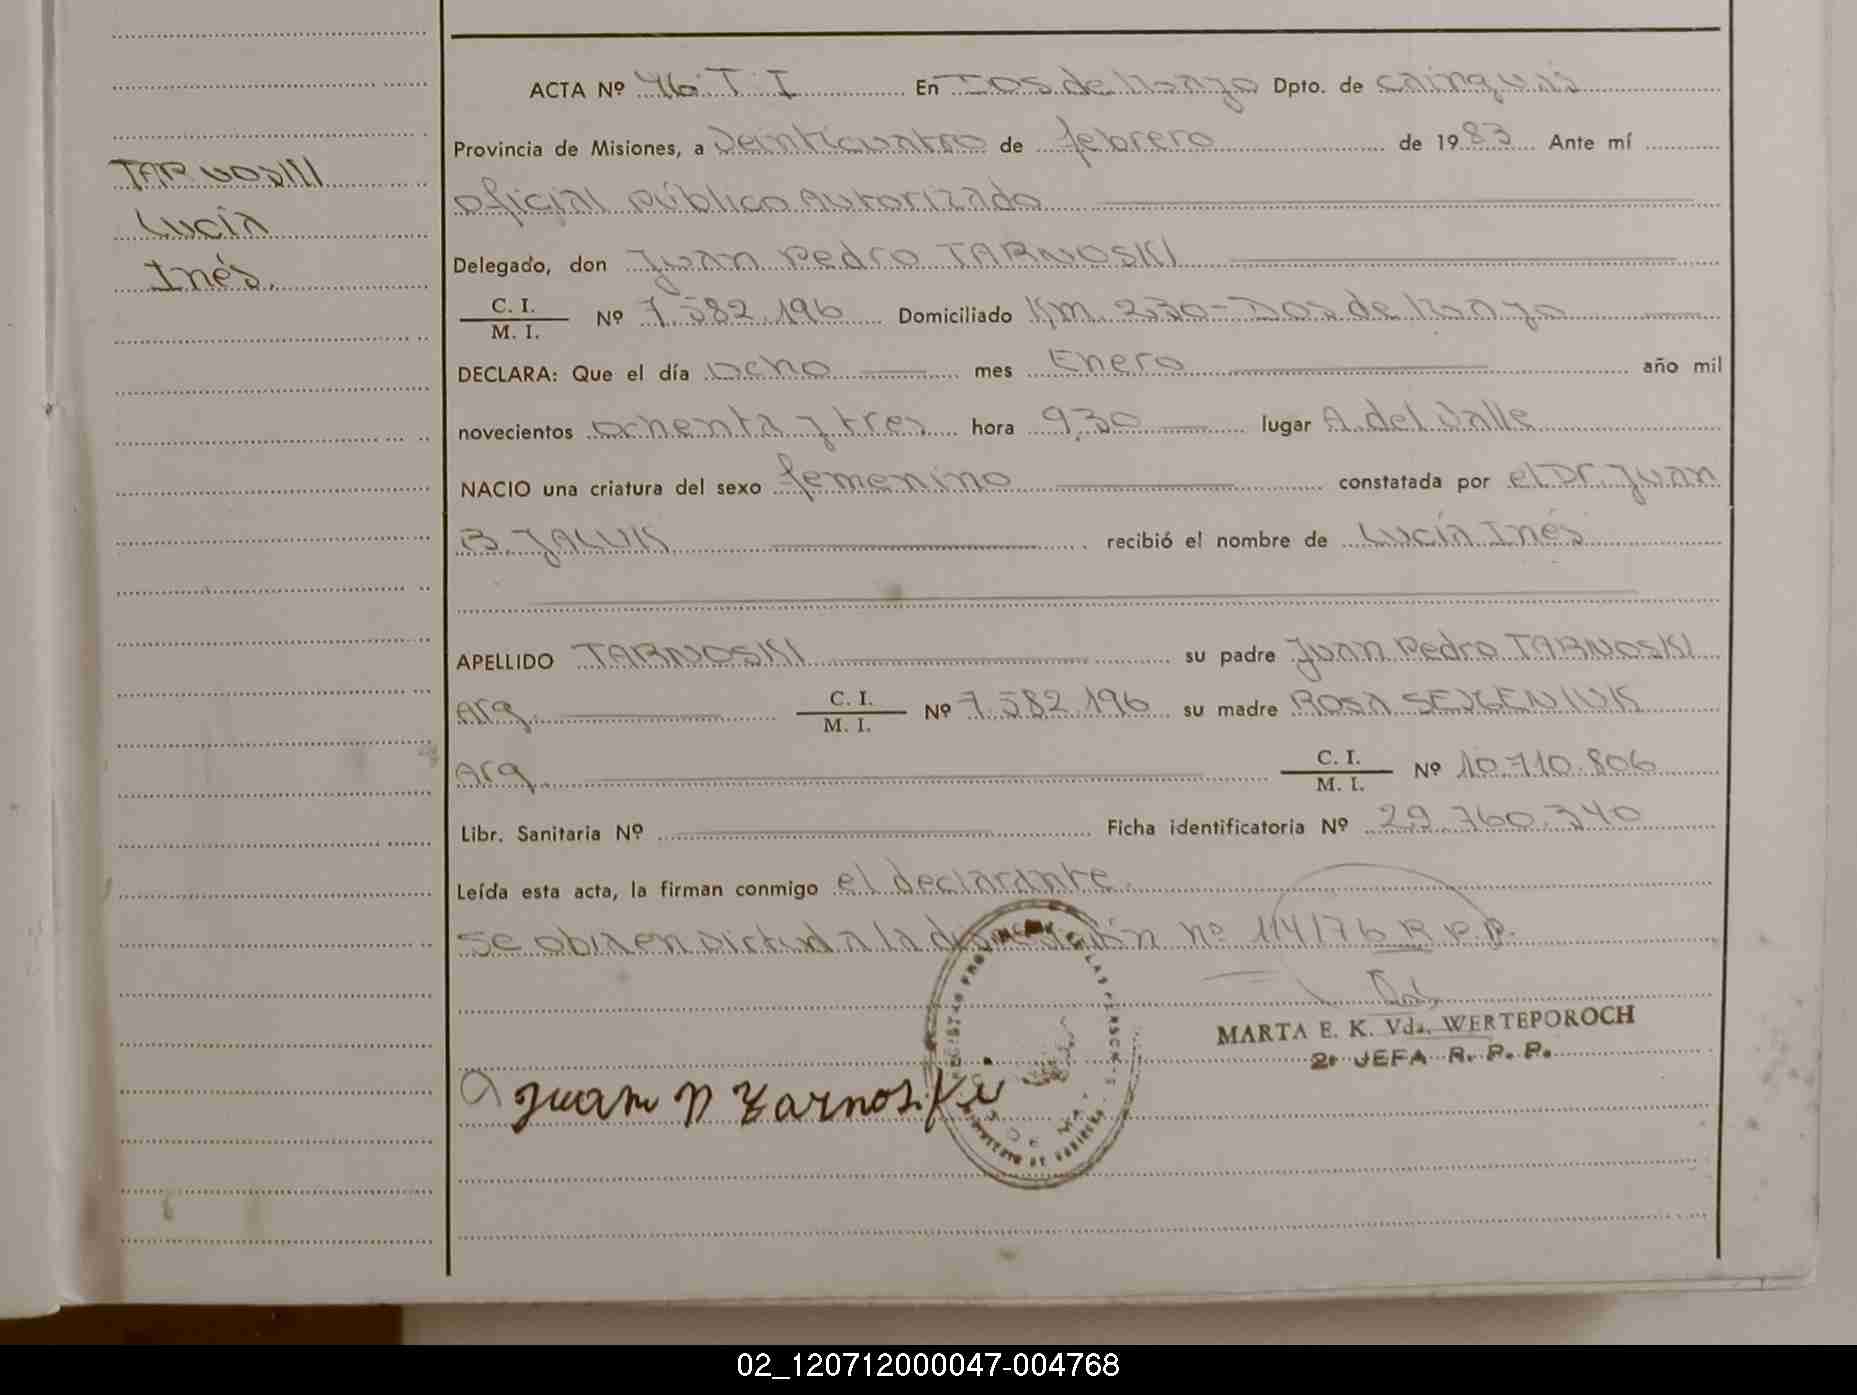 TARNOSKI
Lucía
Inés.
ACTA Nº 46 T I En DOS de Mayo Dpto. de Cainguás
Provincia de Misiones, a Veinticuatro de febrero de 1983 Ante mí
Oficial público Autorizado
Delegado, don Juan Pedro TARNOSKI
C. I.
M. I. Nº 7.582.196 Domiciliado Km. 230-Dos de Mayo
DECLARA: Que el día Ocho mes Enero año mil
novecientos ochenta y tres hora 9,30 lugar A. del Valle
NACIO una criatura del sexo femenino constatada por el Dr. Juan
B. JALUIK recibió el nombre de Lucía Inés
APELLIDO TARNOSKI su padre Juan Pedro TARNOSKI
Arg. C. I.
M. I. Nº 7.582.196 su madre ROSA
Arg. C. I.
M. I. Nº 10.710.806
Libr. Sanitaria Nº Ficha identificatoria Nº 29.760.340
Leída esta acta, la firman conmigo el declarante.
Se obra en virtud a la disposición nº 114/76 R.P.P.
MARTA E. K. Vda. WERTEPOROCH
2º JEFA R. P. P.
Juan P Tarnoski
02_120712000047-004768